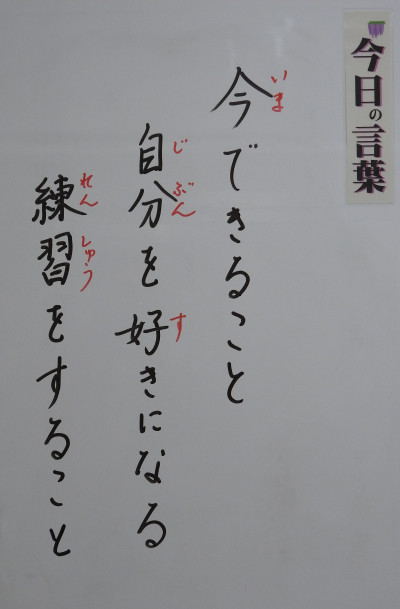 今日の言葉
今できること
いま
自分を好きになる
じ ぶん す
練習をすること
れん しゅう